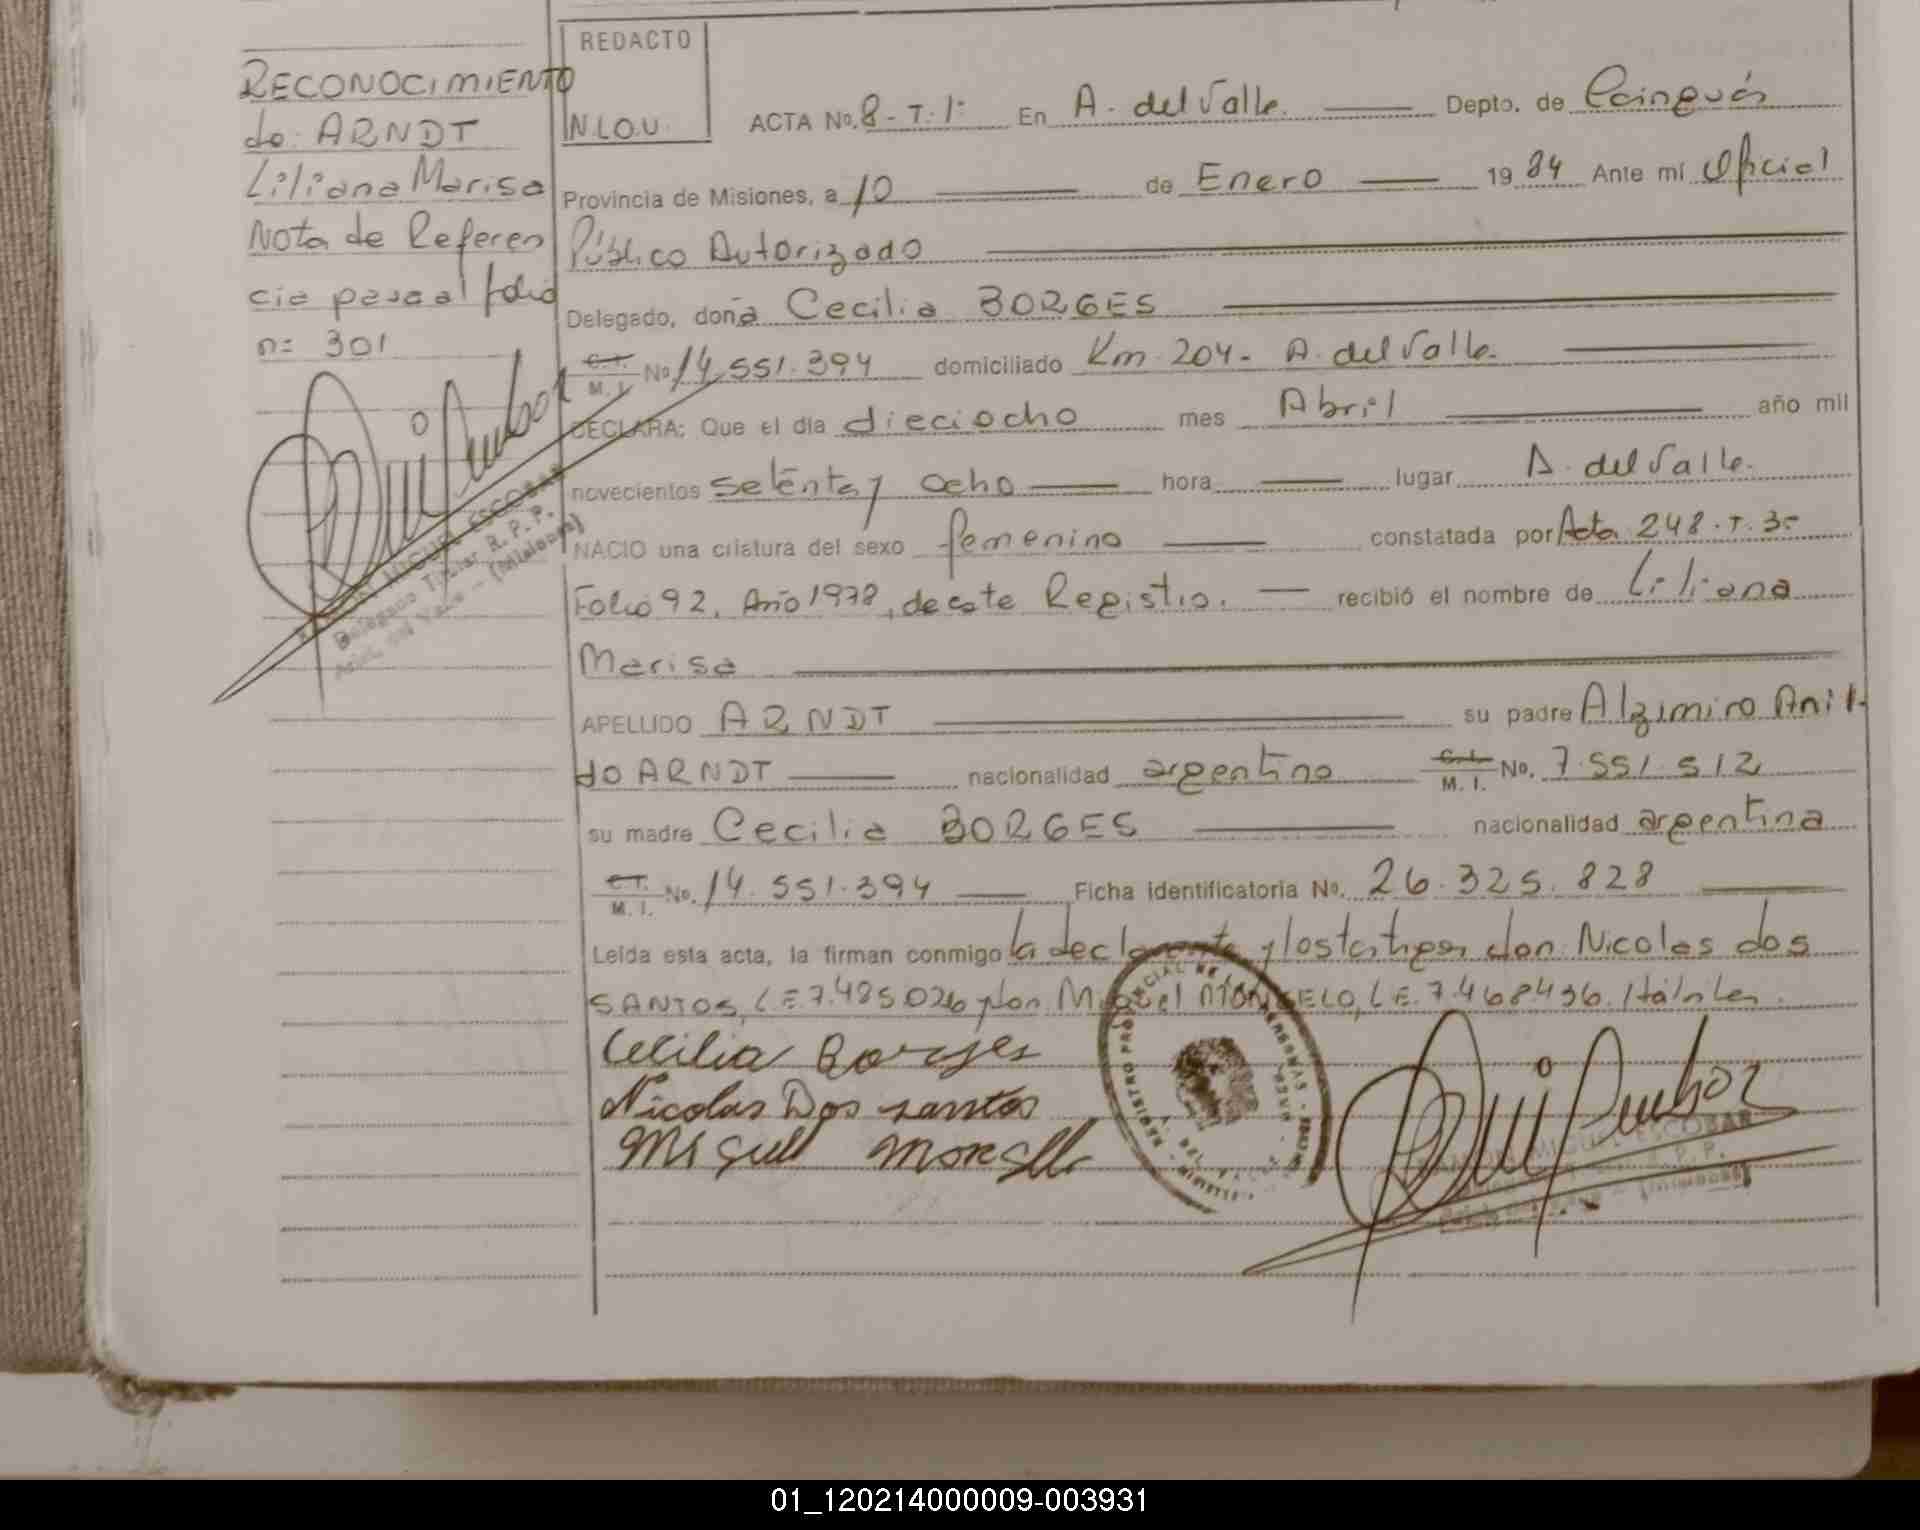 RECONOCIMIENTO
de: ARNDT
Liliana Marisa
Nota de Referen
cia pasa al folio
n= 301
REDACTO
N.L.O.U.
ACTA No. 8-T.1º En A. del Valle. Depto. de Cainguás
Provincia de Misiones, a 10 de Enero 1984 Ante mí Oficial
Público Autorizado
Delegado, doña Cecilia BORGES
C.I. M.I. No 14.551.394 domiciliado Km. 204- A. del Valle.
DECLARA: Que el día dieciocho mes Abril año mil
novecientos setenta y ocho hora lugar A. del Valle.
NACIO una criatura del sexo femenino constatada por Acta 248.T.3º
Folio 92, Año 1978, de este Registro. recibió el nombre de Liliana
Marisa
APELLIDO ARNDT su padre Alzimiro Anil-
do ARNDT nacionalidad argentino C.I. M.I. No. 7.551.512
su madre Cecilia BORGES nacionalidad argentina
C.I. M.I. No. 14.551.394 Ficha identificatoria No. 26.325.828
Leída esta acta, la firman conmigo la declarante y los testigos don: Nicolas dos
SANTOS, L.E. 7.485.026 y don Miguel L.E. 7.468.436.
Cecilia Borges
Nicolas Dos santos
Miguel
REGISTRO PROVINCIAL DE LAS PERSONAS
RAMON MIGUEL ESCOBAR
Delegado Titular R.P.P.
(Misiones)
MIGUEL ESCOBAR
R.P.P.
(Misiones)
01_120214000009-003931